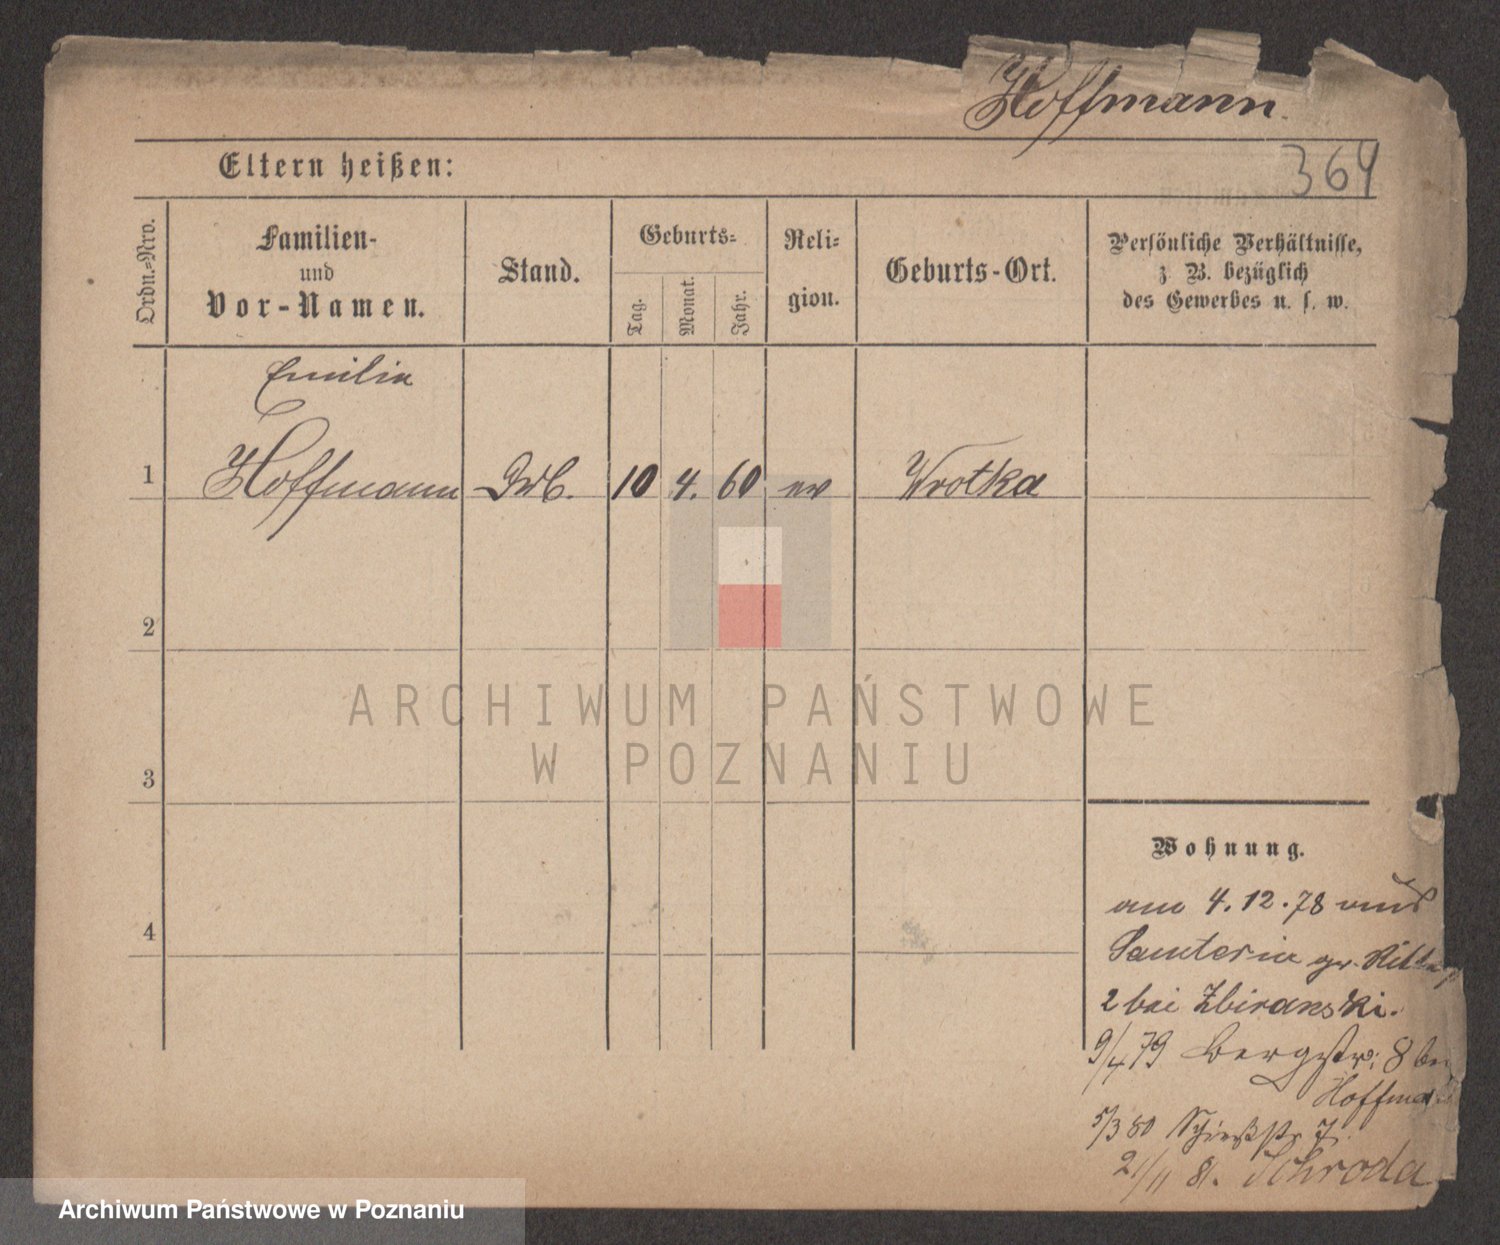 Hoffmann.
364
Eltern heißen:
Ordn.-Nro.
Familien-
und
Vor-Namen.
Stand.
Geburts-
Tag.
Monat.
Jahr.
Reli-
gion.
Geburts-Ort.
Persönliche Verhältnisse,
z. B. bezüglich
des Gewerbes u. s. w.
Emilie
1 Hoffmann 10 4. 60 ev Wrotka
2
3
4
ARCHIWUM PAŃSTWOWE
W POZNANIU
Wohnung.
am 4.12.78 aus
Samter in gr. Ritter
2 bei Zbiranski.
9/4 79 Bergstr: 8 bei
Hoffmann
5/3 80 Schießstr 7.
21/11 81. Schroda
Archiwum Państwowe w Poznaniu